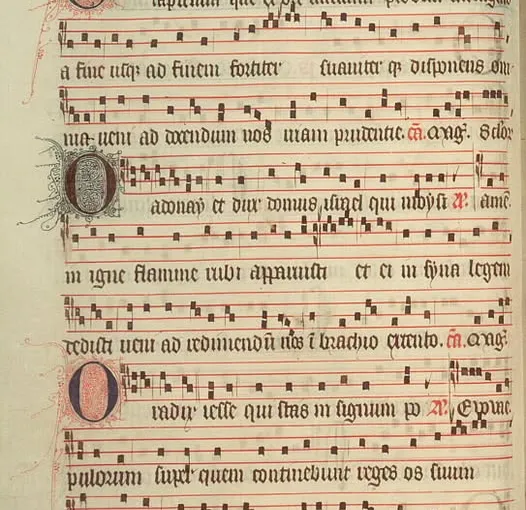 a fine usq; ad finem fortiter suauiter q; disponens om
nia ueni ad docendum nos uiam prudentie. c̄a. Mag̃.
O adonay et dux domus israel qui moysi R̃. amē.
in igne flamme rubi apparuisti et ei in syna legem
dedisti ueni ad redimendū nos ī brachio extento. c̄a. Mag̃.
O radix iesse qui stas in signum po R̃. Euouae.
pulorum super quem continebunt reges os suum